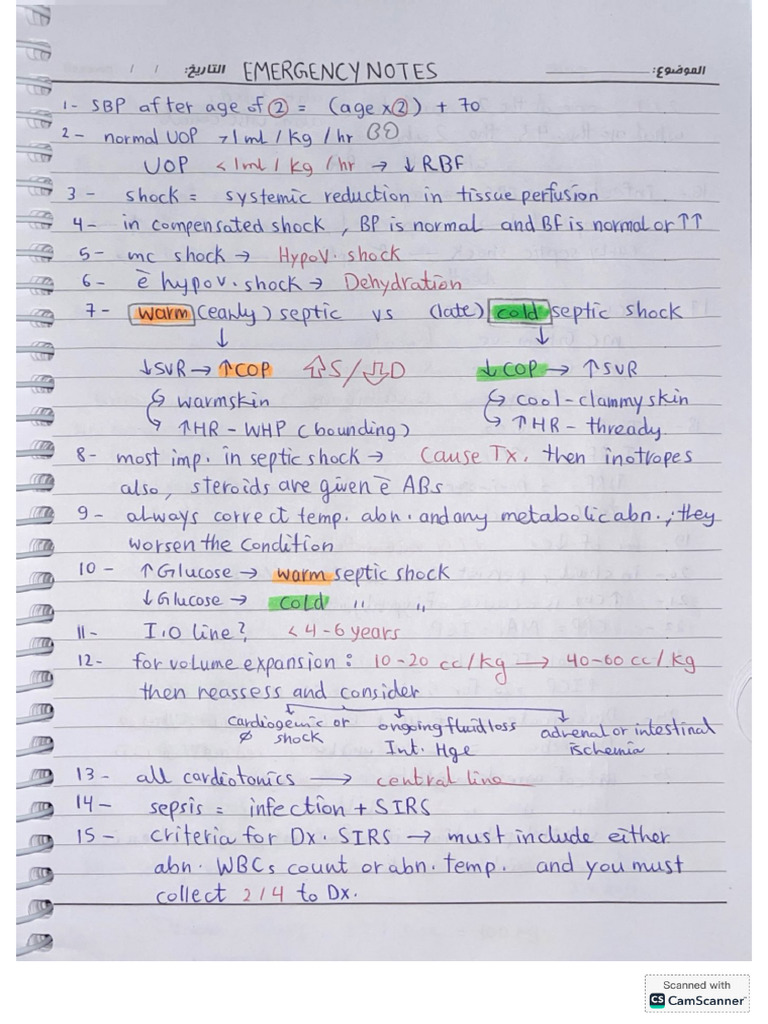 الموضوع:
التاريخ: / / EMERGENCY NOTES
1- SBP after age of 2 = (age x 2) + 70
2- normal UOP >1ml / kg / hr
UOP <1ml / kg / hr → ↓ RBF
3- shock = systemic reduction in tissue perfusion
4- in compensated shock, BP is normal and BF is normal or ↑↑
5- mc shock → Hypov. shock
6- ē hypov. shock → Dehydration
7- warm (early) septic vs (late) cold septic shock
↓ ↓
↓SVR → ↑COP ⇧S/⇩D ↓COP → ↑SVR
warm skin cool-clammy skin
↑HR - WHP (bounding) ↑HR - thready
8- most imp. in septic shock → Cause Tx, then inotropes
also, steroids are given ē ABs
9- always correct temp. abn. and any metabolic abn.; they
worsen the condition
10- ↑Glucose → warm septic shock
↓Glucose → cold " "
11- I.O line? <4-6 years
12- for volume expansion: 10-20 cc/kg → 40-60 cc/kg
then reassess and consider
cardiogenic or ongoing fluid loss adrenal or intestinal
shock Int. Hge ischemia
13- all cardiotonics → central line
14- sepsis = infection + SIRS
15- criteria for Dx. SIRS → must include either
abn. WBCs count or abn. temp. and you must
collect 2/4 to Dx.
Scanned with
CS CamScanner